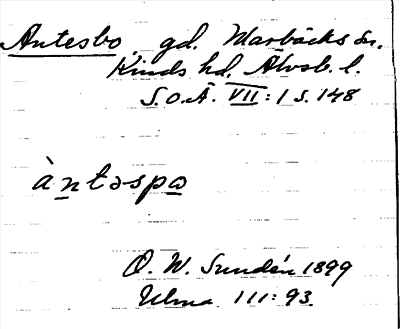 Antesbo, gd. Marbäcks sn.
Kinds hd, Älvsb. l.
S.O.Ä. VII:1 s. 148
àntəspo
O. W. Sundén 1899
Ulma 111:93.